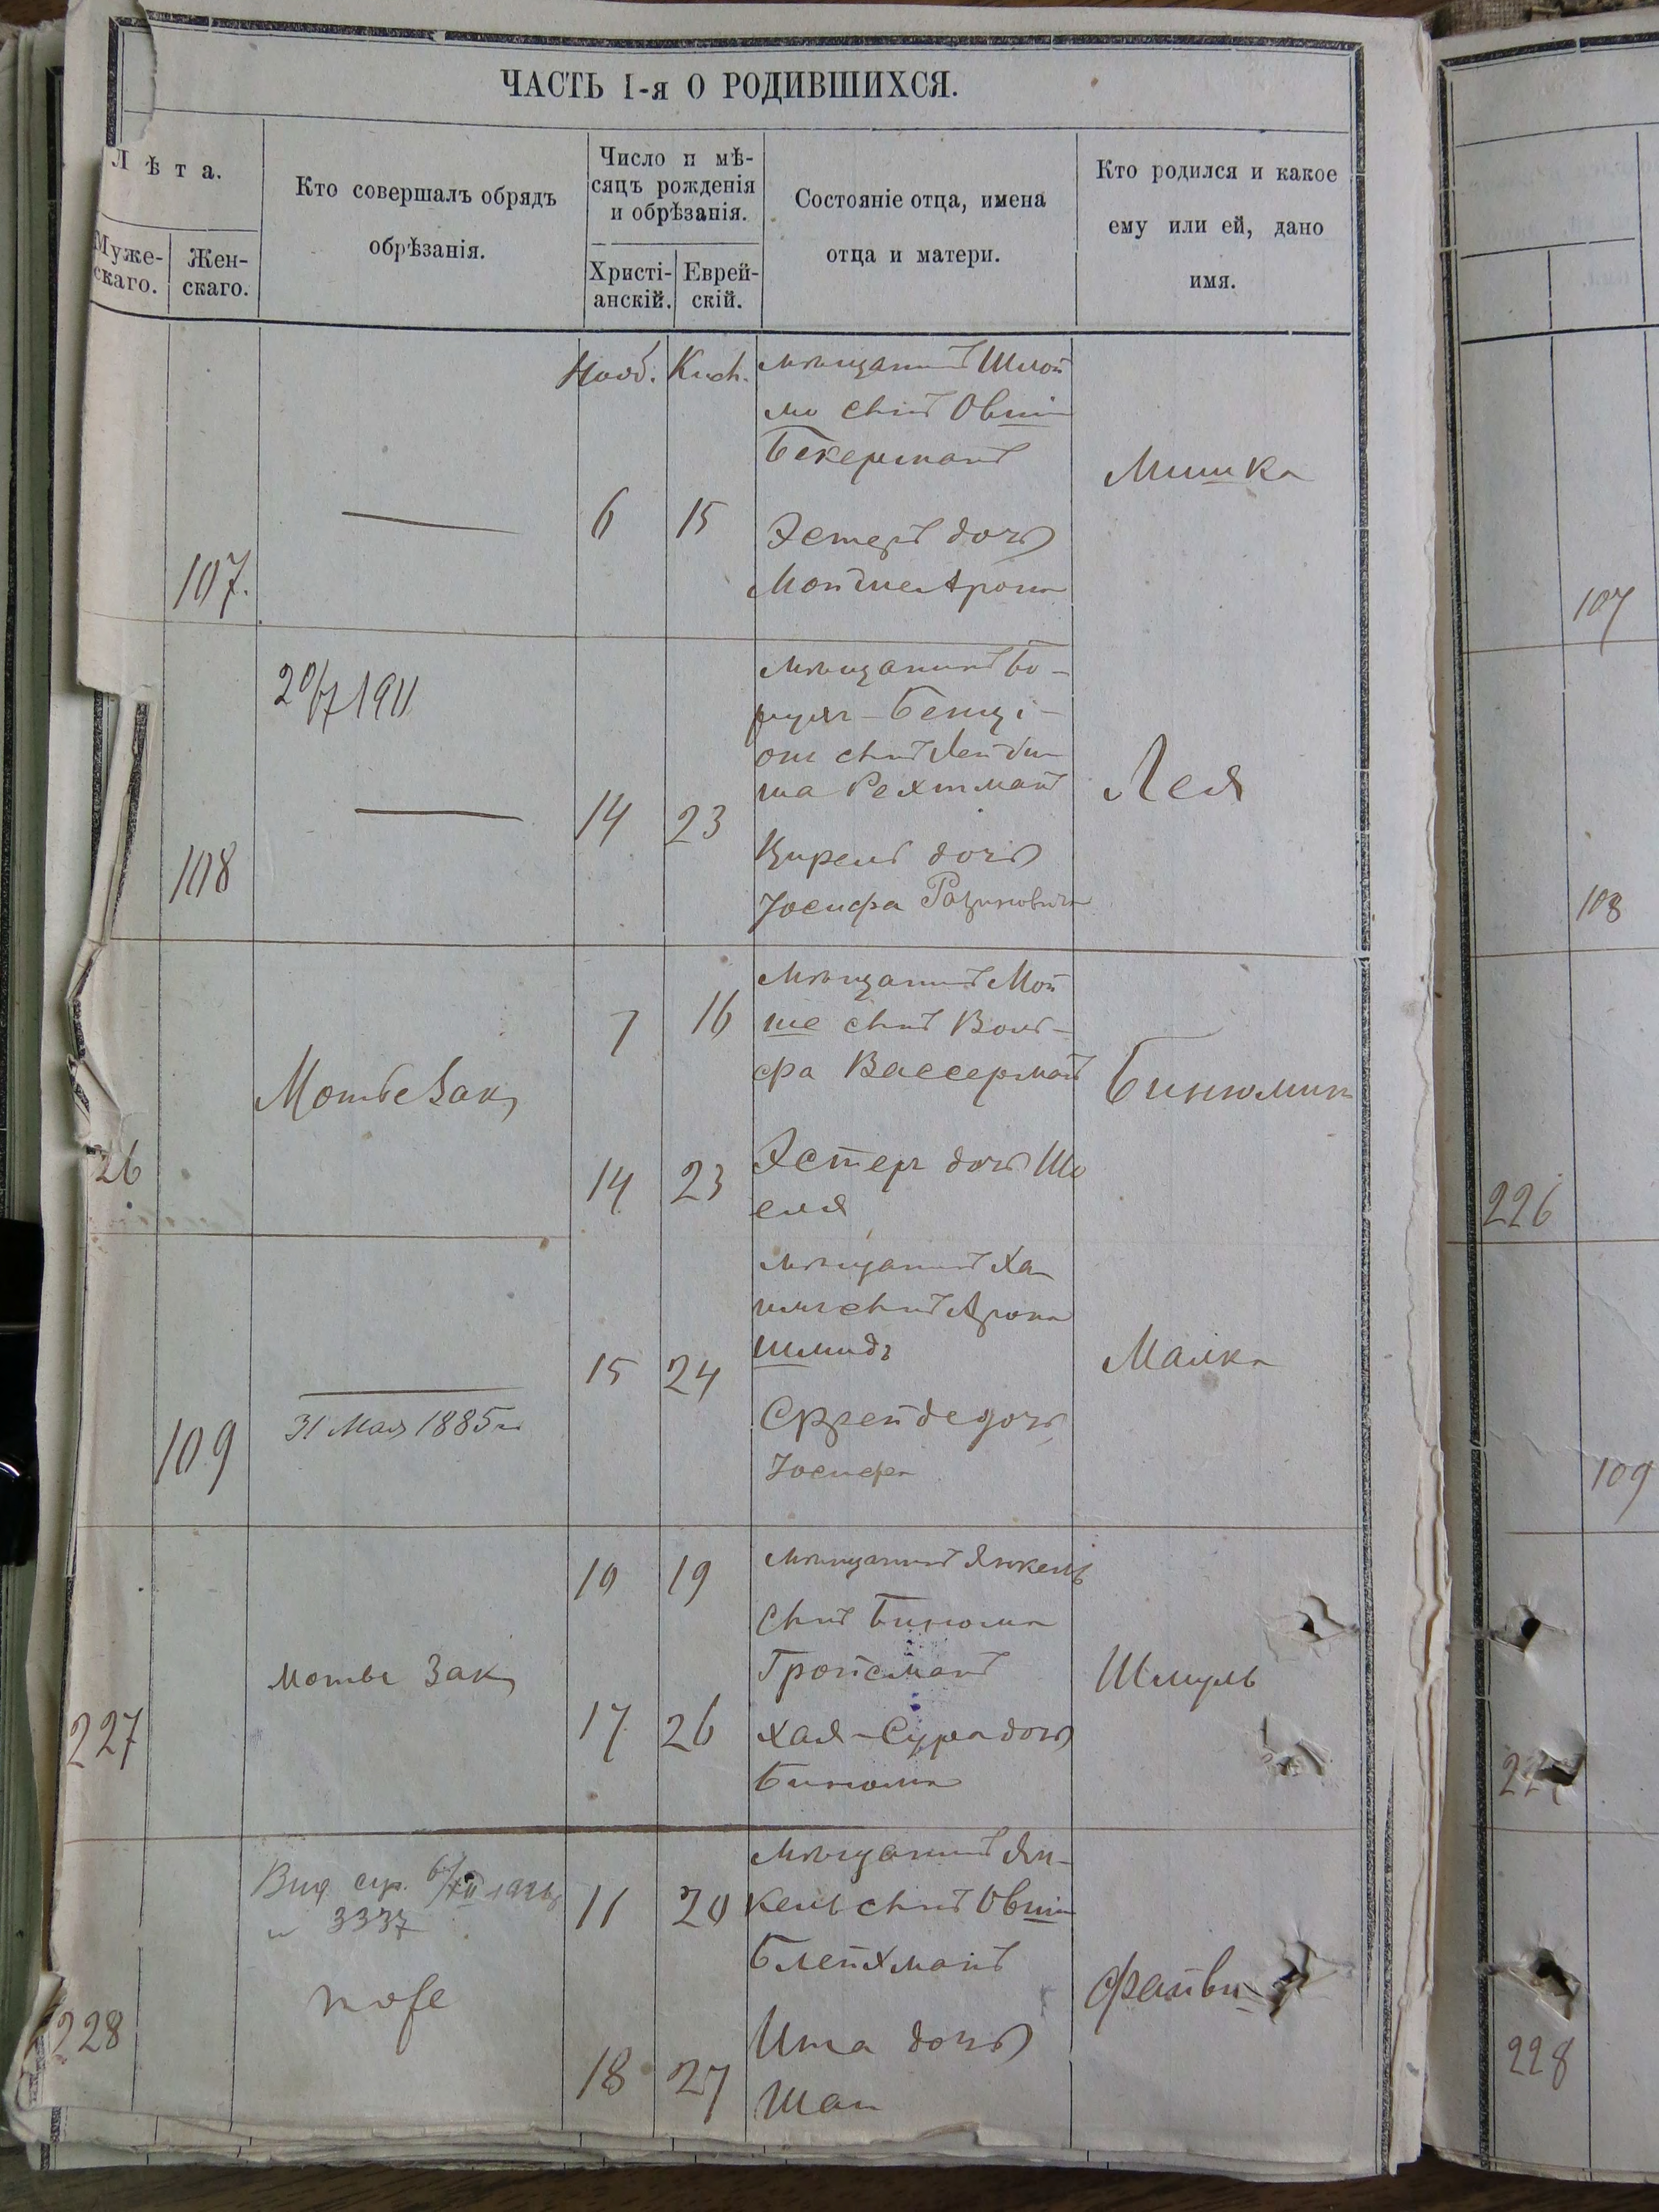 ЧАСТЬ I-я О РОДИВШИХСЯ.
Лѣта.
Муже-
скаго.
Жен-
скаго.
Кто совершалъ обрядъ
обрѣзанія.
Число и мѣ-
сяцъ рожденія
и обрѣзанія.
Христі-
анскій.
Еврей-
скій.
Состояніе отца, имена
отца и матери.
Кто родился и какое
ему или ей, дано
имя.
107.
Нояб.
6
15
мѣщанинъ Шлой
ма сынъ Овши
Бекерманъ
Эстеръ дочь
Мойше Арона
Мишка
108
20/7 1911
14
23
мѣщанинъ Бо-
рухъ-Бенці-
онъ сынъ Лейби
ша Рехтманъ
Цирель дочь
Іосифа Рабиновича
Лея
26
Мотье Закъ
7
16
14
23
Мѣщанинъ Мой
ше сынъ Воль-
фа Вассерманъ
Эстеръ дочь Шо
еля
Бинюминъ
109
31 Мая 1885 г.
15
24
мѣщанинъ Ха
имъ сынъ Арона
Шмидъ
Сфрейде дочь
Іосифа
Малка
227
мотье Закъ
10
19
17
26
мѣщанинъ Янкель
сынъ Бинюма
Гройсманъ
Хая-Сура дочь
Бинюма
Шмуль
228
3337
тоже
11
20
18
27
мѣщанинъ Ян-
кель сынъ Овши
Блейхманъ
Ита дочь
Шаи
Файви
107
108
226
109
227
228